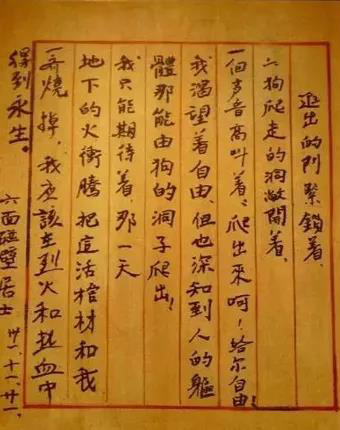 进出的門緊鎖着,
狗爬走的洞敞開着,
一個声音高叫着:爬出來呵!给尔自由!
我渴望着自由,但也深知到人的軀
體那能由狗的洞子爬出!
我只能期待着,那一天
地下的火衝騰把這活棺材和我
一齊燒掉,我应該在烈火和热血中
得到永生。
六面碰壁居士 卅一、十一、廿一.